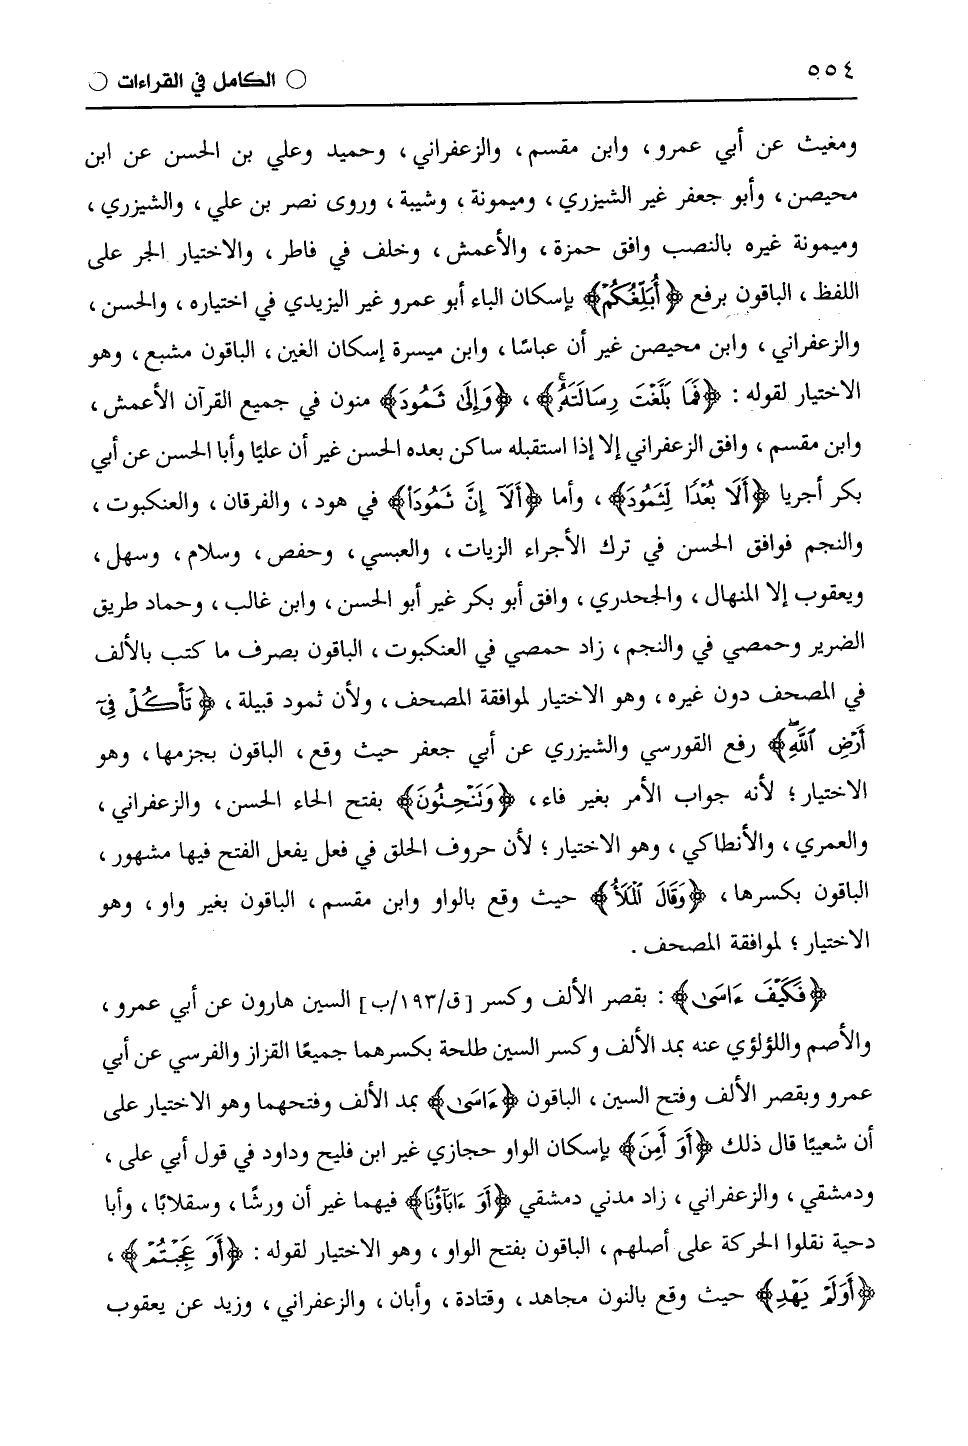 ٥٥٤
○ الكامل في القراءات ○
ومغيث عن أبي عمرو، وابن مقسم، والزعفراني، وحميد وعلي بن الحسن عن ابن
محيصن، وأبو جعفر غير الشيزري، وميمونة، وشيبة، وروى نصر بن علي، والشيزري،
وميمونة غيره بالنصب وافق حمزة، والأعمش، وخلف في فاطر، والاختيار الجر على
اللفظ، الباقون برفع ﴿أُبَلِّغُكُمْ﴾ بإسكان الباء أبو عمرو غير اليزيدي في اختياره، والحسن،
والزعفراني، وابن محيصن غير أن عباسًا، وابن ميسرة إسكان الغين، الباقون مشبع، وهو
الاختيار لقوله: ﴿فَمَا بَلَّغْتَ رِسَالَتَهُۥ﴾، ﴿وَإِلَى ثَمُودَ﴾ منون في جميع القرآن الأعمش،
وابن مقسم، وافق الزعفراني إلا إذا استقبله ساكن بعده الحسن غير أن عليًا وأبا الحسن عن أبي
بكر أجريا ﴿أَلَا بُعْدًا لِّثَمُودَ﴾، وأما ﴿أَلَآ إِنَّ ثَمُودَا۟﴾ في هود، والفرقان، والعنكبوت،
والنجم فوافق الحسن في ترك الأجراء الزيات، والعبسي، وحفص، وسلام، وسهل،
ويعقوب إلا المنهال، والجحدري، وافق أبو بكر غير أبو الحسن، وابن غالب، وحماد طريق
الضرير وحمصي في والنجم، زاد حمصي في العنكبوت، الباقون بصرف ما كتب بالألف
في المصحف دون غيره، وهو الاختيار لموافقة المصحف، ولأن ثمود قبيلة، ﴿تَأْكُلْ فِىٓ
أَرْضِ ٱللَّهِۖ﴾ رفع القورسي والشيزري عن أبي جعفر حيث وقع، الباقون بجزمها، وهو
الاختيار؛ لأنه جواب الأمر بغير فاء، ﴿وَتَنْحِتُونَ﴾ بفتح الحاء الحسن، والزعفراني،
والعمري، والأنطاكي، وهو الاختيار؛ لأن حروف الحلق في فعل يفعل الفتح فيها مشهور،
الباقون بكسرها، ﴿وَقَالَ ٱلْمَلَأُ﴾ حيث وقع بالواو وابن مقسم، الباقون بغير واو، وهو
الاختيار؛ لموافقة المصحف.
﴿فَكَيْفَ ءَاسَىٰ﴾: بقصر الألف وكسر [ق/١٩٣/ب] السين هارون عن أبي عمرو،
والأصم واللؤلؤي عنه بمد الألف وكسر السين طلحة بكسرهما جميعًا القزاز والفرسي عن أبي
عمرو وبقصر الألف وفتح السين، الباقون ﴿ءَاسَىٰ﴾ بمد الألف وفتحهما وهو الاختيار على
أن شعيبًا قال ذلك ﴿أَوَ أَمِنَ﴾ بإسكان الواو حجازي غير ابن فليح وداود في قول أبي على،
ودمشقي، والزعفراني، زاد مدني دمشقي ﴿أَوَ ءَابَآؤُنَا﴾ فيهما غير أن ورشًا، وسقلابًا، وأبا
دحية نقلوا الحركة على أصلهم، الباقون بفتح الواو، وهو الاختيار لقوله: ﴿أَوَ عَجِبْتُمْ﴾،
﴿أَوَلَمْ يَهْدِ﴾ حيث وقع بالنون مجاهد، وقتادة، وأبان، والزعفراني، وزيد عن يعقوب